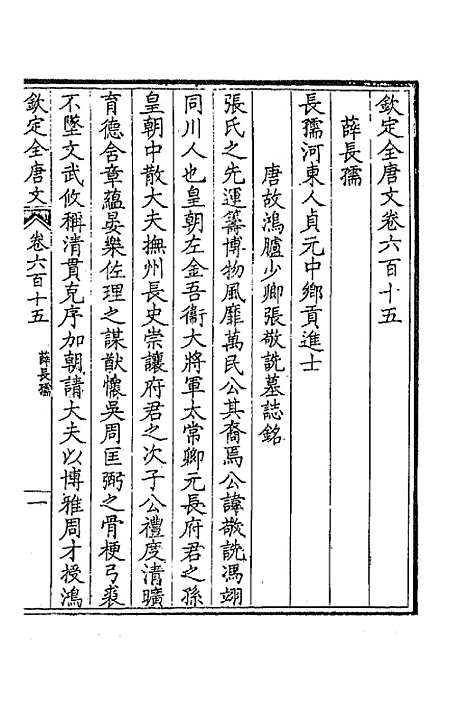 欽定全唐文卷六百十五
薛長孺
長孺河東人貞元中鄉貢進士
唐故鴻臚少卿張敬詵墓誌銘
張氏之先運籌博物風靡萬民公其裔焉公諱敬詵馮翊
同川人也皇朝左金吾衞大將軍太常卿元長府君之孫
皇朝中散大夫撫州長史崇讓府君之次子公禮度清曠
育德含章蘊晏樂佐理之謀猷懷吳周匡弼之骨梗弓裘
不墜文武攸稱清貫克序加朝請大夫以博雅周才授鴻
欽定全唐文
卷六百十五
薛長孺
一